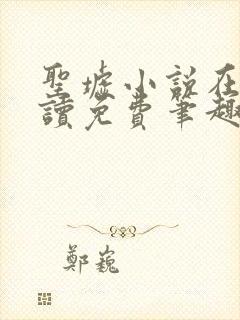 聖墟小說在
讀免費筆趣
鄭巍